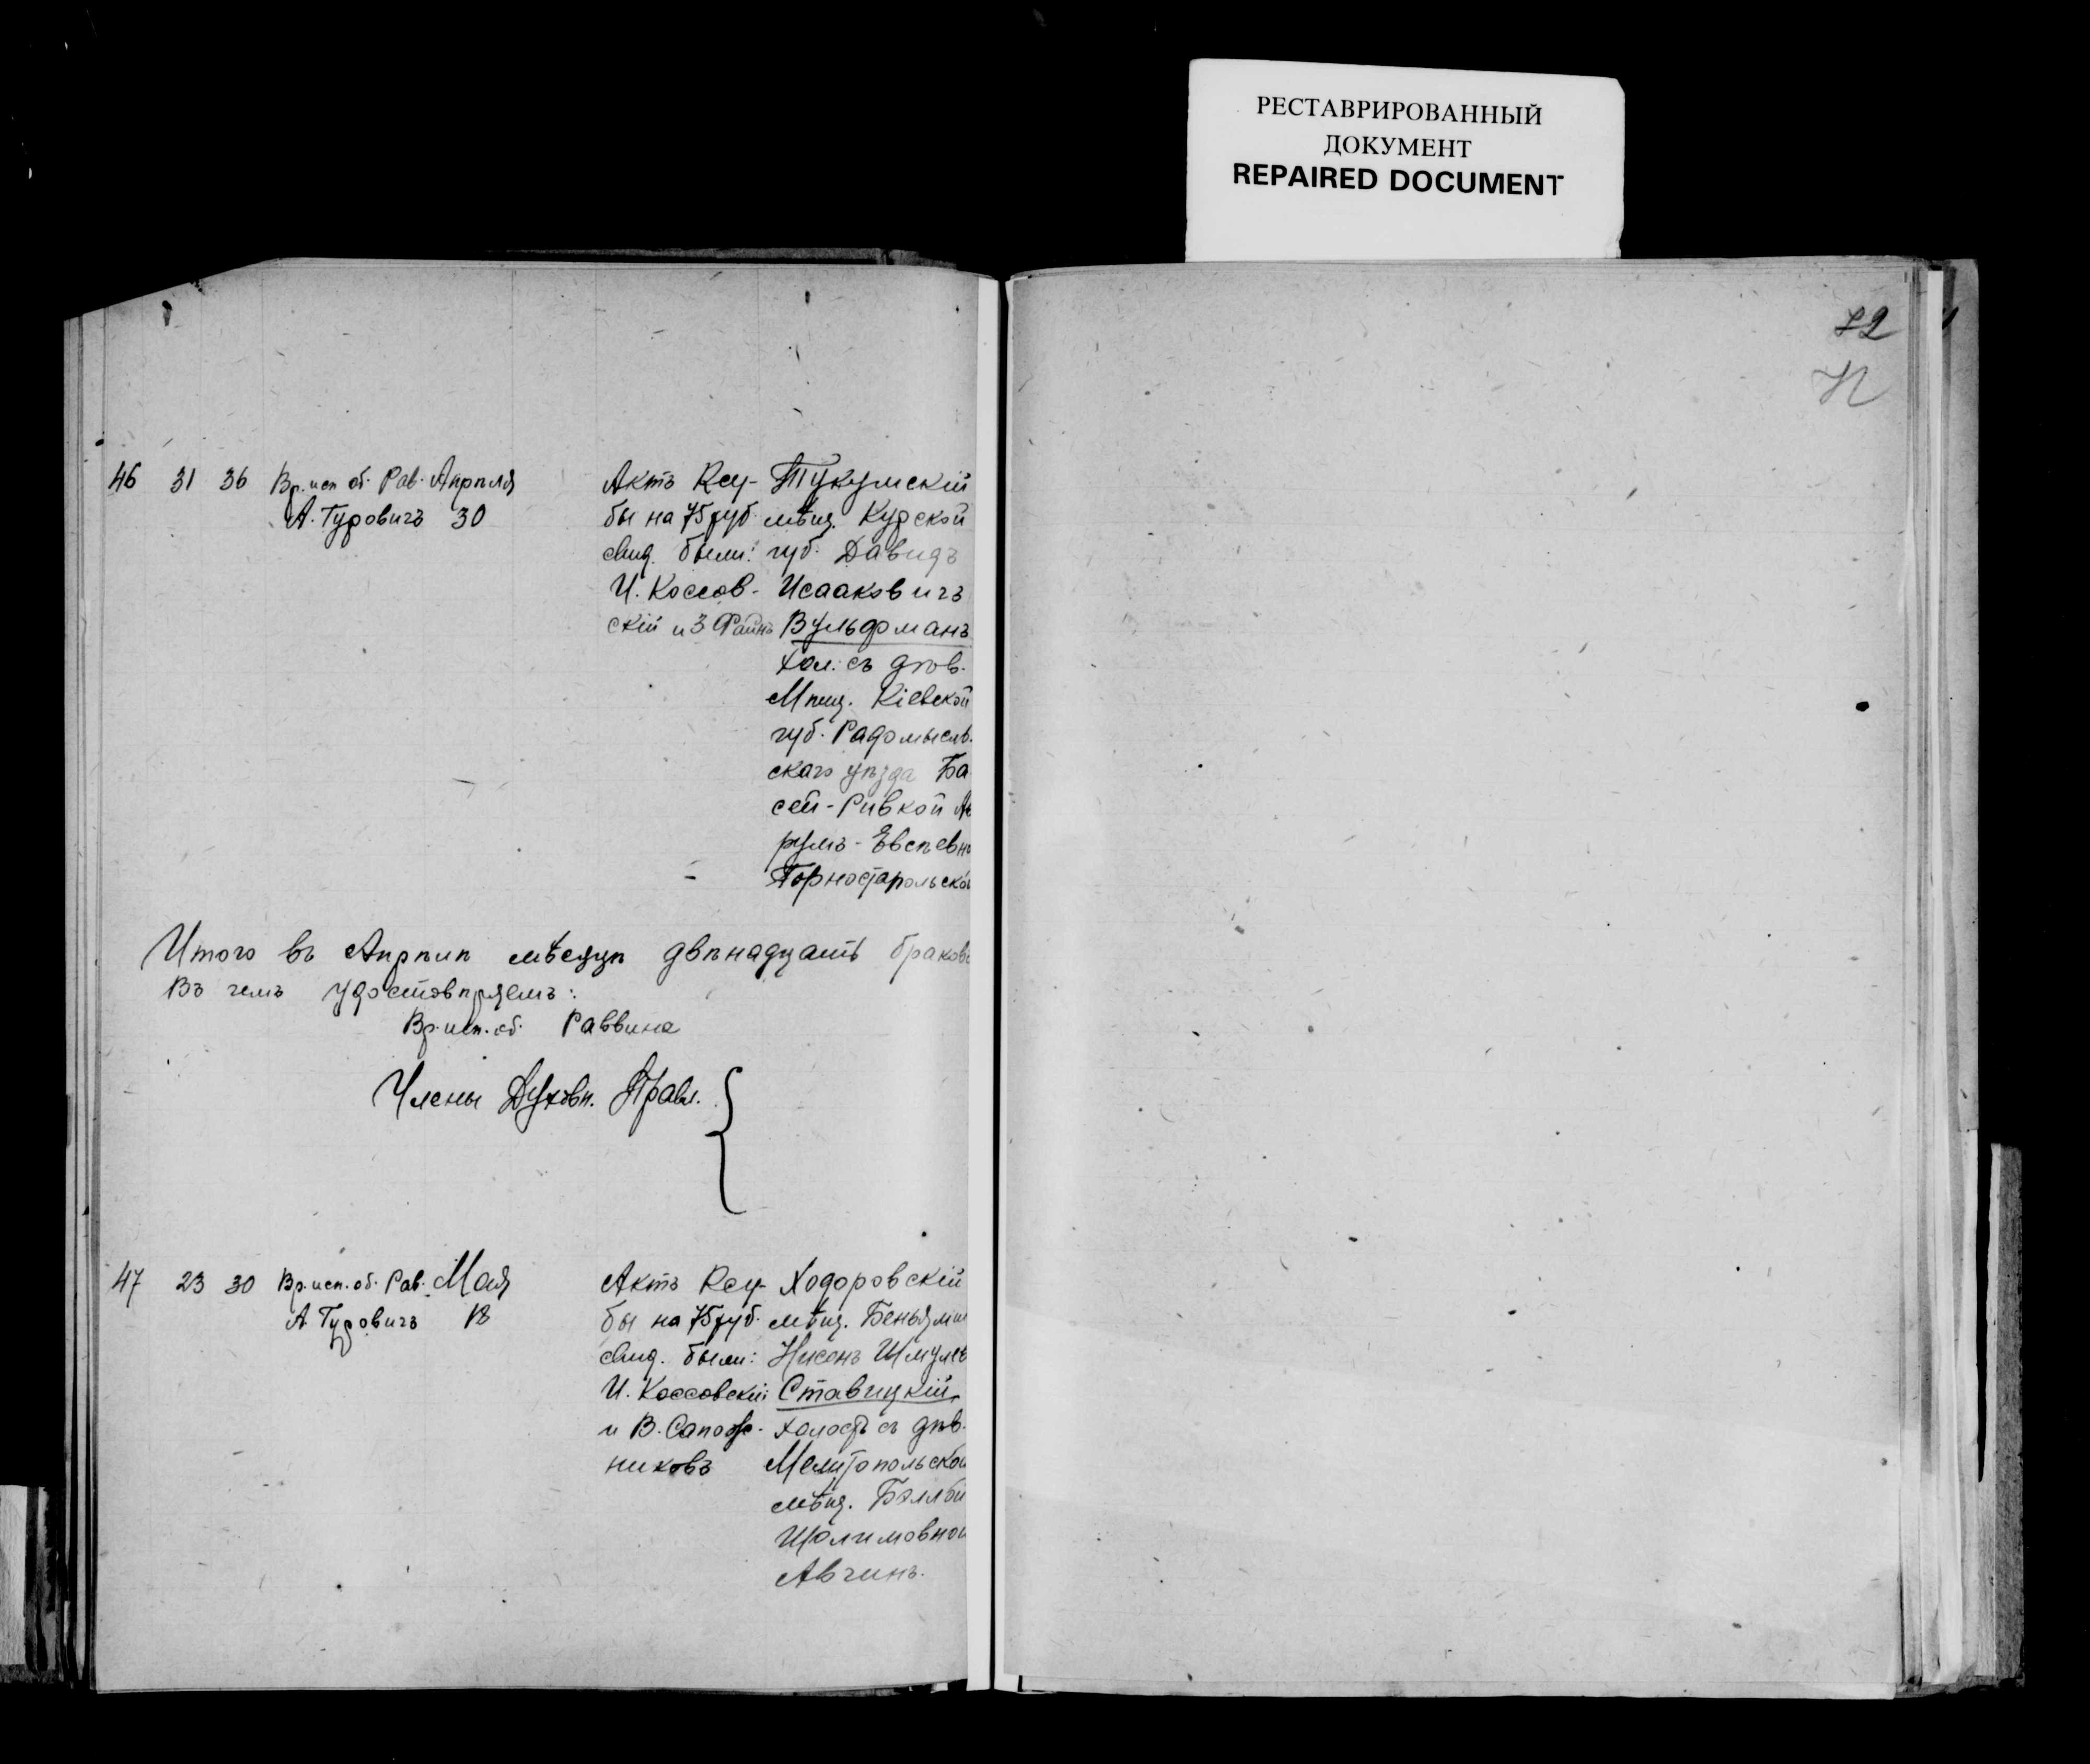 РЕСТАВРИРОВАННЫЙ
ДОКУМЕНТ
REPAIRED DOCUMENT
46 31 36 Вр. исп об. Рав. Апрѣля Актъ Кеу- Тукумскій
А. Туровичъ 30 бы на 75 руб. мѣщ. Курской
Свид. были: губ. Давидъ
И. Коссов- Исааковичъ
скій и З Файнъ Вульфманъ
хол. съ дѣв.
Мѣщ. Кіевской
губ. Радомысль-
скаго уѣзда Ба
сей-Ривкой Аб
румъ-Евсѣевн
Горностапольской
Итого въ Апрѣлѣ мѣсяцѣ двѣнадцать браковъ
Въ чемъ удостовѣряемъ:
Вр. исп. об. Раввина
Члены Духовн. Правл.
47 23 30 Вр. исп. об. Рав. Мая Актъ Кеу- Ходоровскій
А. Туровичъ бы на 75 руб. мѣщ. Беньямин
Свид. были: Нисонъ Шмулев
И. Коссовскій Ставицкій
и В. Сапож- холост съ дѣв.
никовъ Мелитопольской
мѣщ. Бэллой
Шолимовной
Авчинъ.